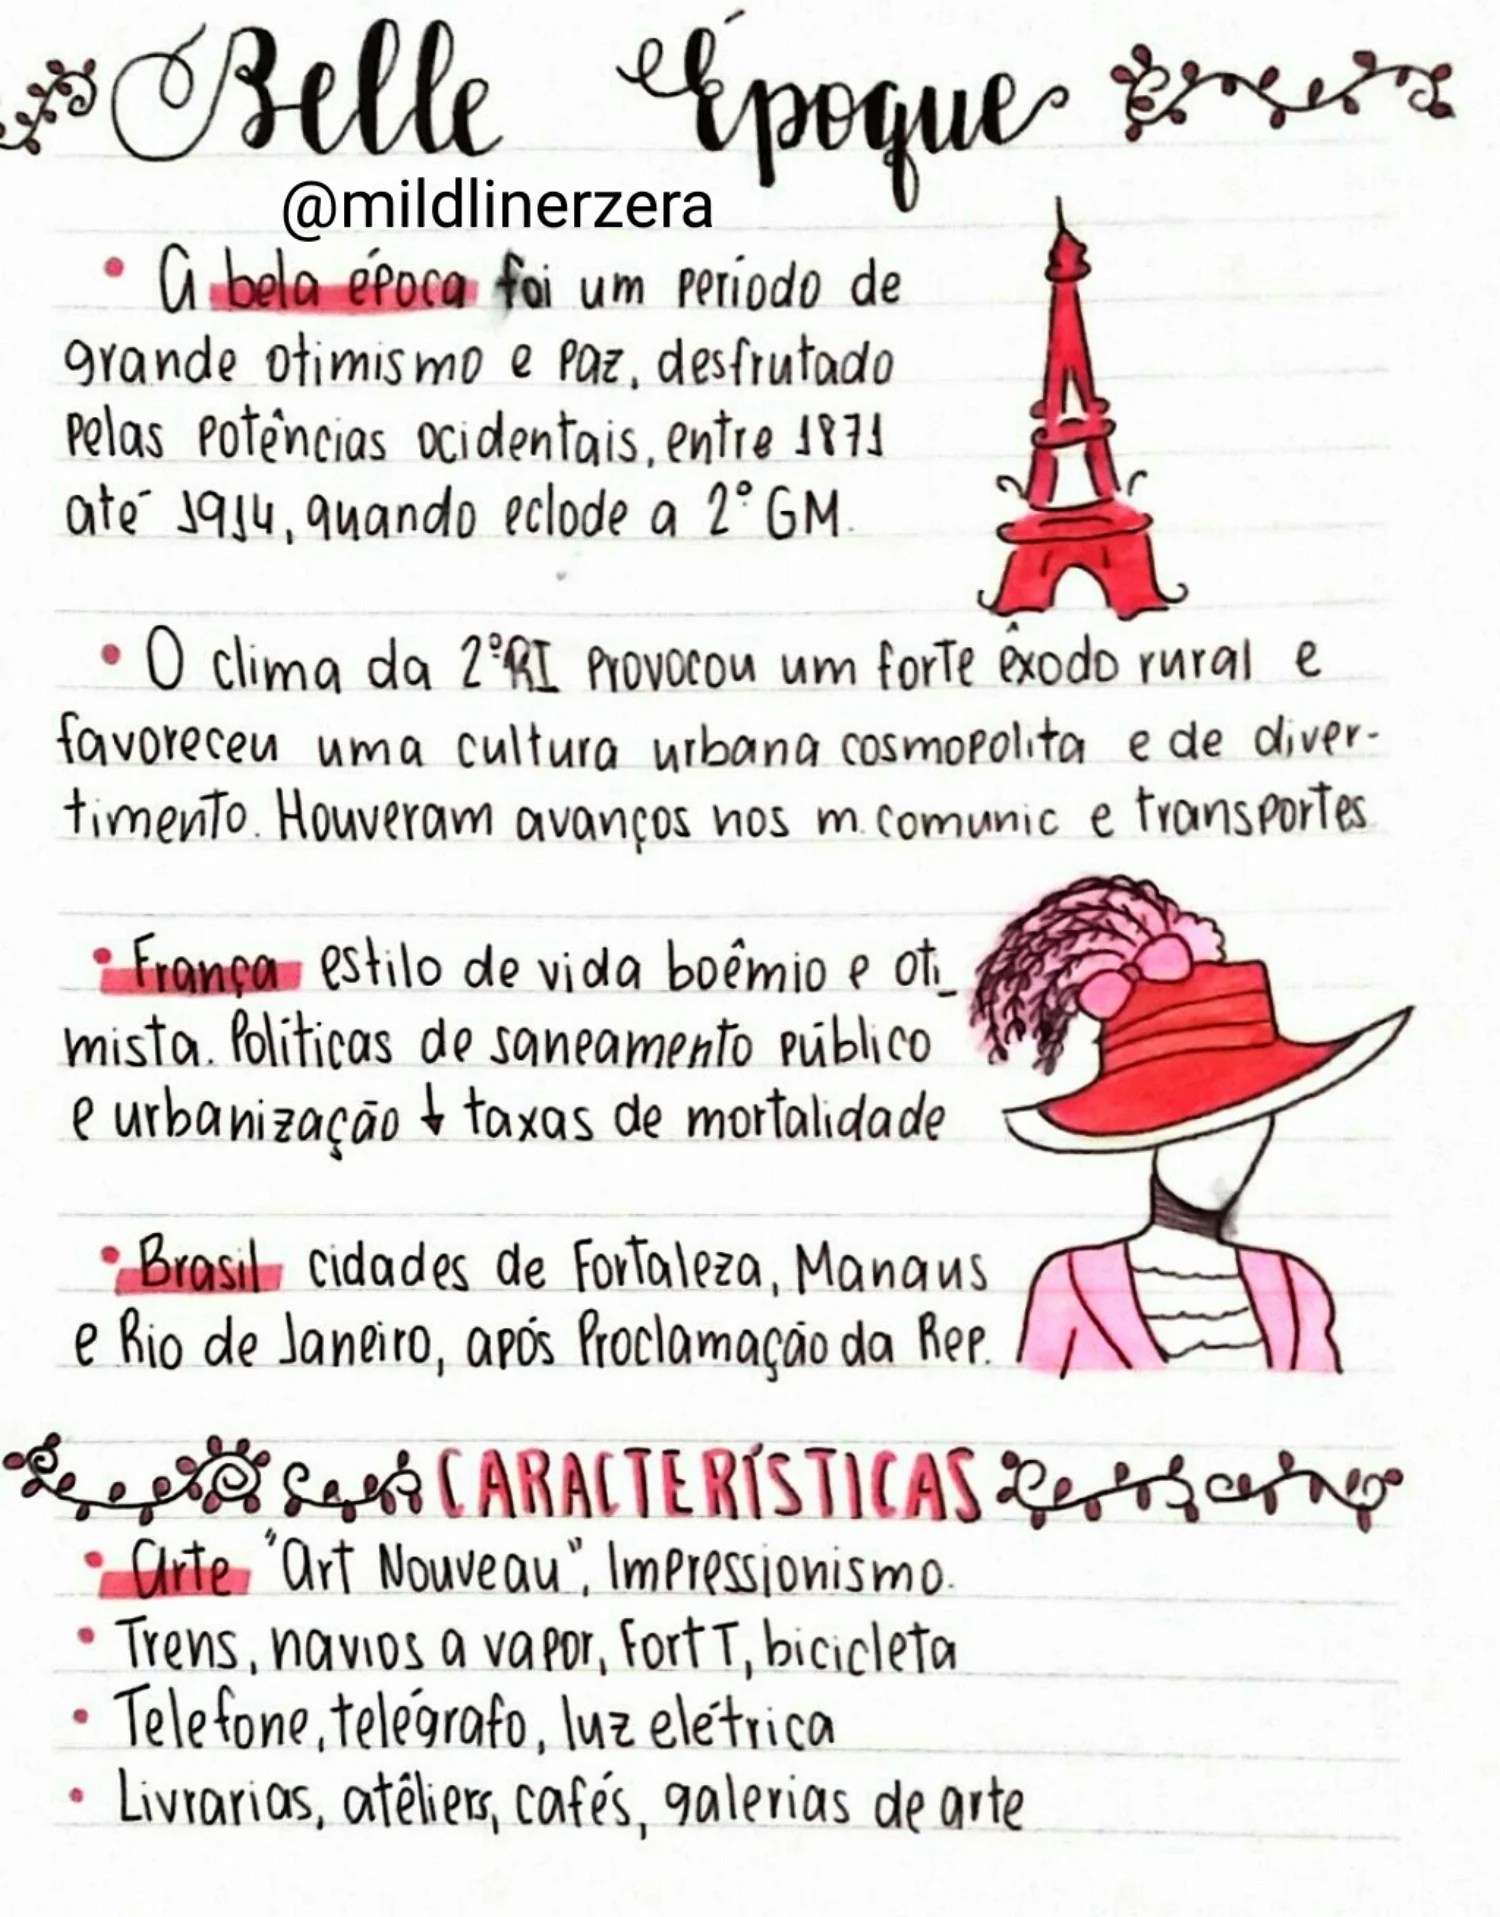 Belle Époque
@mildlinerzera
• A bela época foi um período de
grande otimismo e paz, desfrutado
pelas potências ocidentais, entre 1871
até 1914, quando eclode a 2º GM.
• O clima da 2ºRI provocou um forte êxodo rural e
favoreceu uma cultura urbana cosmopolita e de diver-
timento. Houveram avanços nos m. comunic e transportes
• França estilo de vida boêmio e oti_
mista. Políticas de saneamento público
e urbanização ↓ taxas de mortalidade
• Brasil cidades de Fortaleza, Manaus
e Rio de Janeiro, após Proclamação da Rep.
CARACTERÍSTICAS
• Arte "Art Nouveau", Impressionismo.
• Trens, navios a vapor, Fort T, bicicleta
• Telefone, telégrafo, luz elétrica
• Livrarias, atêliers, cafés, galerias de arte